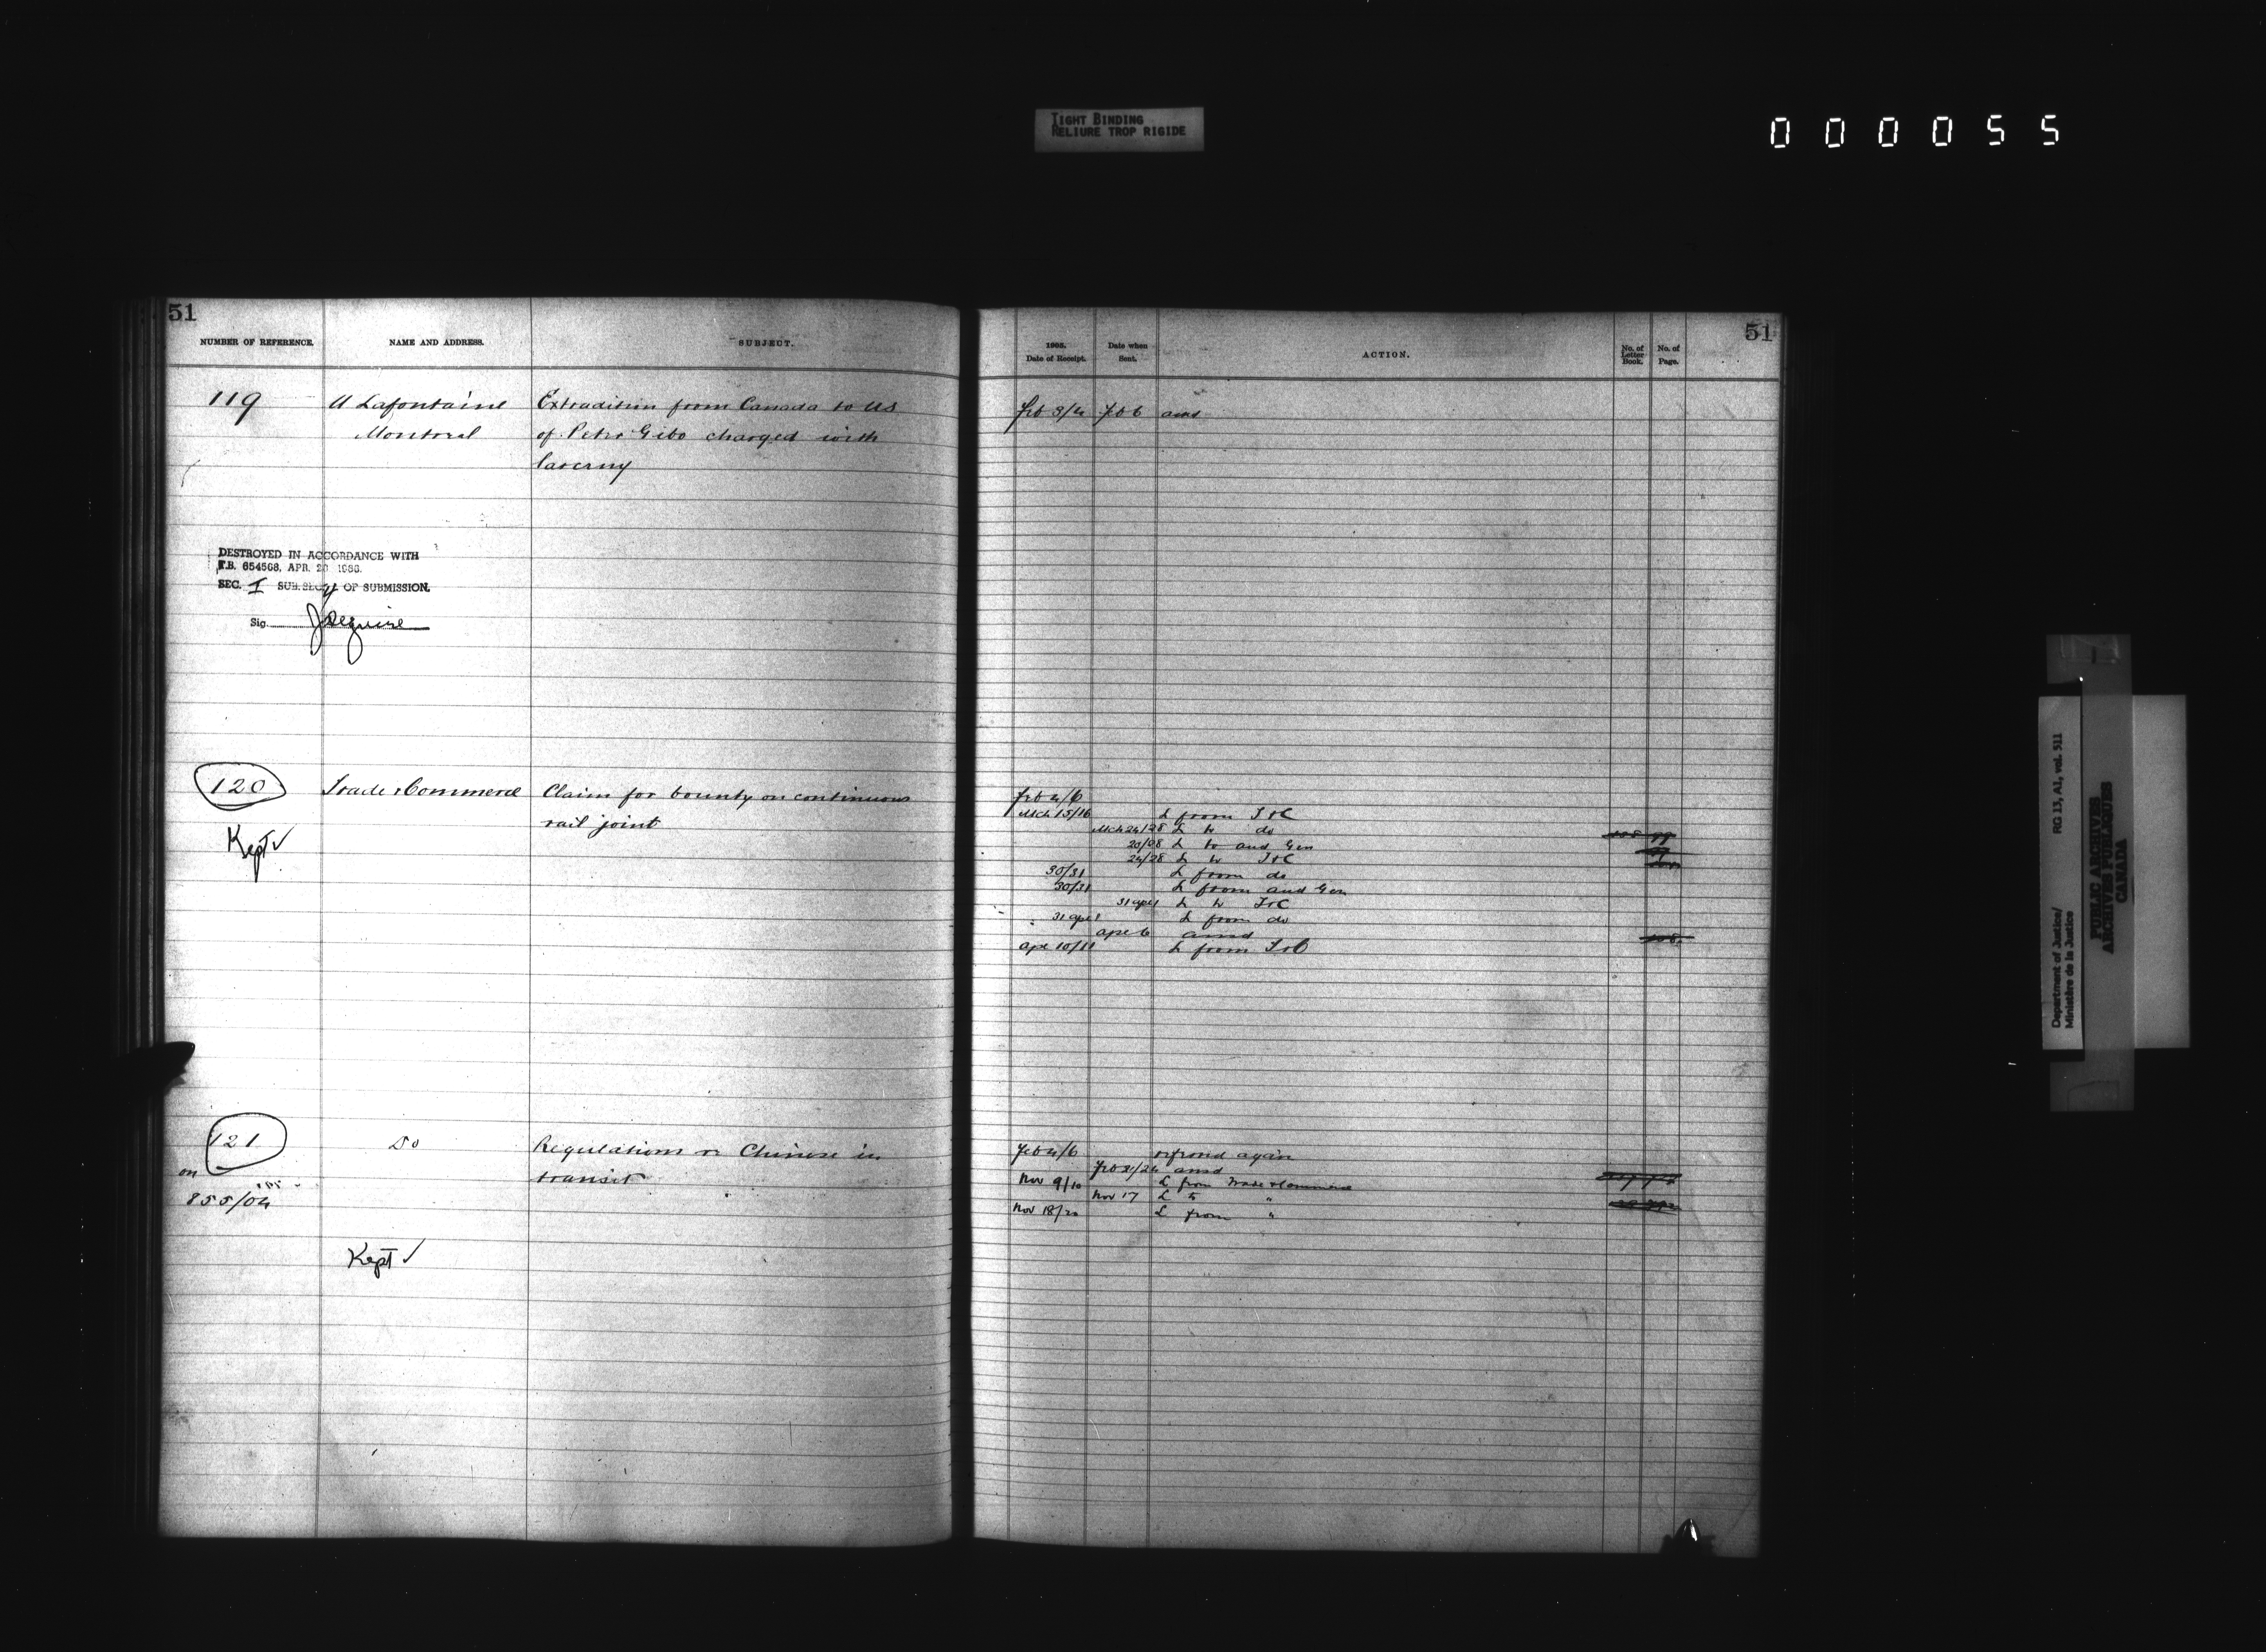 TIGHT BINDING
RELIURE TROP RIGIDE
000055
51
NUMBER OF REFERENCE. NAME AND ADDRESS. SUBJECT.
119 U Lafontaine Extradition from Canada to US
Montreal of Peter Gibo charged with
larceny
DESTROYED IN ACCORDANCE WITH
T.B. 654568, APR.
SEC. I SUB. SEC. OF SUBMISSION.
Sig.
120 Trade & Commerce Claim for bounty on continuous
rail joint
Kept ✓
121 Do Regulations re Chinese in
on transit
855/04
Kept ✓
51
1905. Date of Receipt. Date when Sent. ACTION. No. of Letter Book. No. of Page.
Feb 3/4 Feb 6 ansd
Feb 4/6
Mch 15/16 L from T&C
Mch 24/28 L to do
20/28 L to aud Gen
24/28 L to T&C
30/31 L from do
30/31 L from aud Gen
31 apr 1 L to T&C
31 apr 1 L from do
apr 6 ansd
apr 10/11 L from T&C
Feb 4/6 again
Feb 21/24 ansd
Nov 9/10 L from Trade & Commerce
Nov 17 L to "
Nov 18/20 L from "
Department of Justice/ RG 13, A1, vol. 511
Ministère de la Justice
PUBLIC ARCHIVES
ARCHIVES PUBLIQUES
CANADA